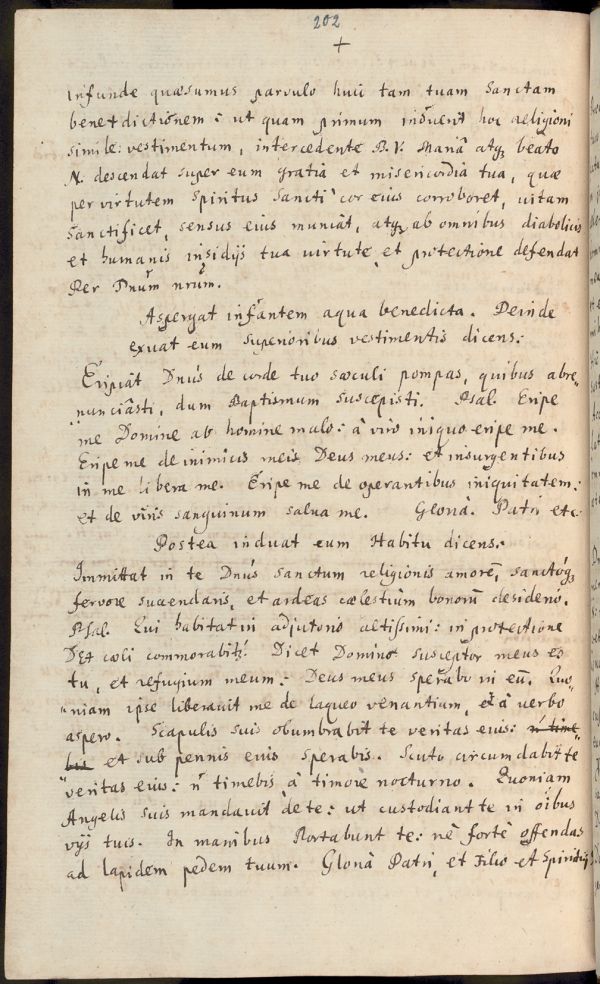 202
+
Infunde quæsumus parvulo huic tam tuam Sanctam
benedictionem: ut quam primum induerit hoc religioni
simile vestimentum, intercedente B.V. Mariâ atq; beato
N. descendat super eum gratia et misericordia tua, quæ
per virtutem Spiritus Sancti cor eius corroboret, vitam
Sanctificet, sensus eius muniat, atq; ab omnibus diabolicis
et humanis insidijs tua virtute et protectione defendat
Per Dnum nrum.
Aspergat infantem aqua benedicta. Deinde
exuat eum superioribus vestimentis dicens:
Eripiat Dnus de corde tuo sæculi pompas, quibus abre=
nunciâsti, dum Baptismum suscepisti. Psal. Eripe
me Domine ab homine malo: à viro iniquo eripe me.
Eripe me de inimicis meis Deus meus: et insurgentibus
in me libera me. Eripe me de operantibus iniquitatem:
et de viris sanguinum salva me. Gloria. Patri etc.
Postea induat eum Habitu dicens:
Immittat in te Dnus sanctum religionis amorē, sanctoq;
fervore succendaris, et ardeas cælestium bonorū desiderio.
Psal. Qui habitat in adjutorio altissimi: in protectione
Dei cæli commorabit. Dicet Domino susceptor meus es
tu, et refugium meum: Deus meus sperabo in eū. Quo=
niam ipse liberavit me de laqueo venantium, et à verbo
aspero. Scapulis suis obumbrabit te veritas eius: n̄ time
bis et sub pennis eius sperabis. Scuto circumdabit te
veritas eius: n̄ timebis à timore nocturno. Quoniam
Angelis suis mandavit de te: ut custodiant te in oibus
vijs tuis. In manibus Portabunt te: nè fortè offendas
ad lapidem pedem tuum. Gloria Patri, et Filio et Spiritui